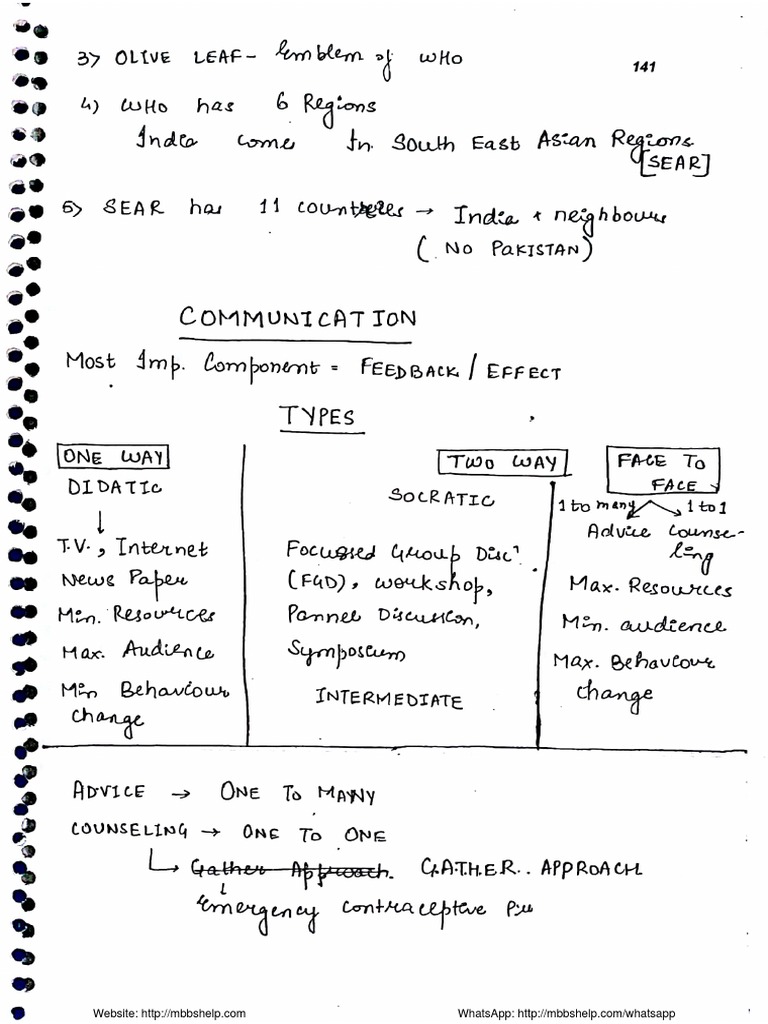 141
3) OLIVE LEAF - Emblem of WHO
4) WHO has 6 Regions
India come In South East Asian Regions
[SEAR]
5) SEAR has 11 countries → India + neighbours
(NO PAKISTAN)
COMMUNICATION
Most Imp. Component = FEEDBACK / EFFECT
TYPES
ONE WAY
DIDATIC
↓
T.V., Internet
News Paper
Min. Resources
Max. Audience
Min Behaviour
change
TWO WAY
SOCRATIC
Focussed Group Discn
(FGD), workshop,
Pannel Discussion,
Symposium
INTERMEDIATE
FACE TO
FACE
1 to many 1 to 1
Advice Counse-
ling
Max. Resources
Min. audience
Max. Behaviour
change
ADVICE → ONE TO MANY
COUNSELING → ONE TO ONE
↳ Gather Approach. G.A.T.H.E.R.. APPROACH
Emergency contraceptive Pill
Website: http://mbbshelp.com
WhatsApp: http://mbbshelp.com/whatsapp